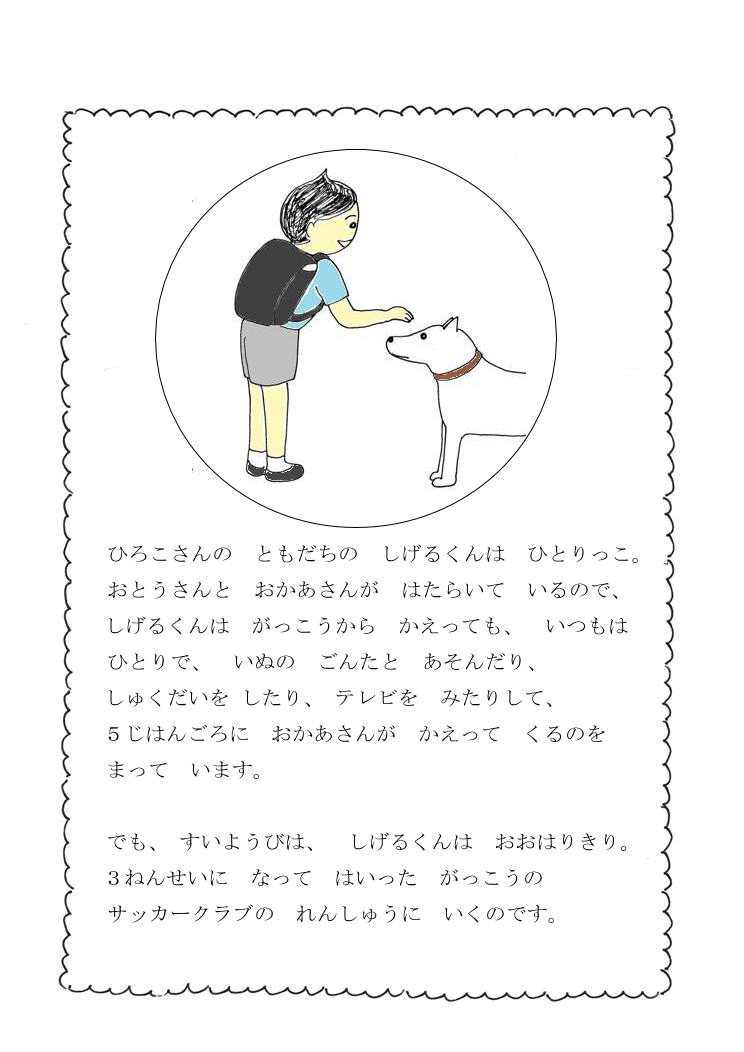 ひろこさんの　ともだちの　しげるくんは　ひとりっこ。
おとうさんと　おかあさんが　はたらいて　いるので、
しげるくんは　がっこうから　かえっても、　いつもは
ひとりで、　いぬの　ごんたと　あそんだり、
しゅくだいを したり、 テレビを　みたりして、
５じはんごろに　おかあさんが　かえって　くるのを
まって　います。
でも、 すいようびは、　しげるくんは　おおはりきり。
３ねんせいに　なって　はいった　がっこうの
サッカークラブの　れんしゅうに　いくのです。